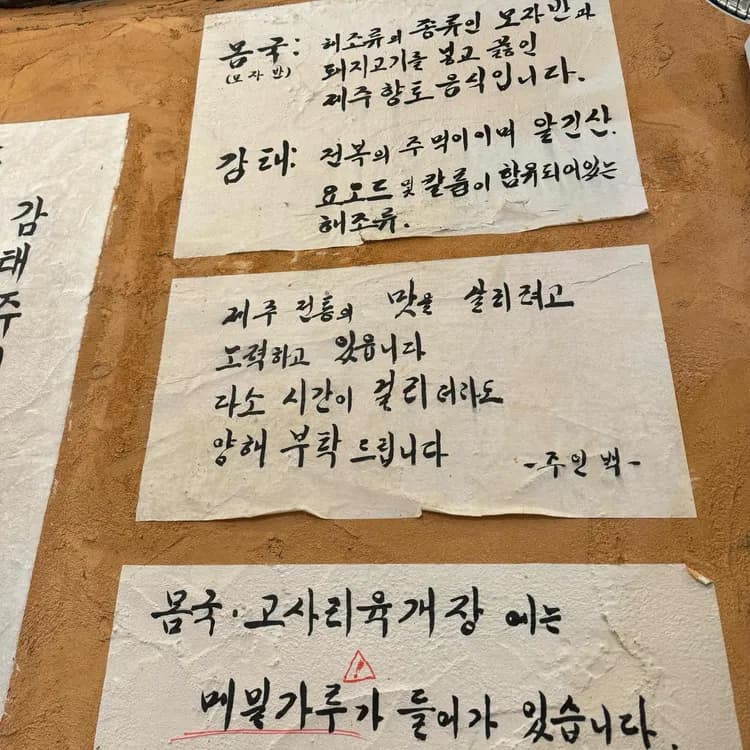 몸국: 해조류의 종류인 모자반과
(모자반) 돼지고기를 넣고 끓인
제주향토음식입니다.
감태: 전복의 주 먹이이며 알긴산.
요오드 및 칼륨이 함유되어있는
해조류.
감태주
제주 전통의 맛을 살리려고
노력하고 있읍니다
다소 시간이 걸리더라도
양해 부탁드립니다
-주인 백-
몸국·고사리육개장에는
메밀가루가 들어가 있습니다